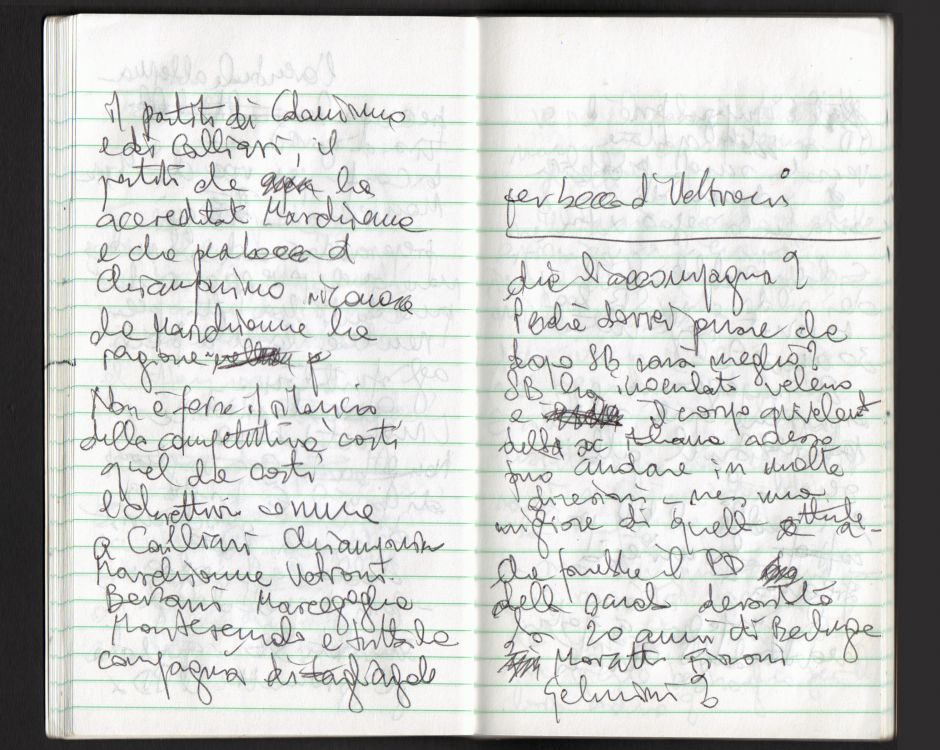 il partito di
e di Calliari, il
partito che ha
accreditato Marchionne
e che per bocca d
Chiamparino
che Marchionne ha
ragione p
Non è forse il rilancio
della competitività costi
quel che costi
l'obiettivo comune
a Calliari Chiamparino
Marchionne Veltroni
Bersani Marcegaglia
Montezemolo e tutta la
compagnia di
per bocca d Veltroni
che l'accompagna?
Perché dovrei pensare che
dopo SB sarà meglio?
SB ha inoculato veleno
e il corpo
della adesso
può andare in molte
direzioni - nessuna
migliore di quella attuale
Che farebbe il PD
della
20 anni di Berlinguer
Moratti Fioroni
Gelmini?